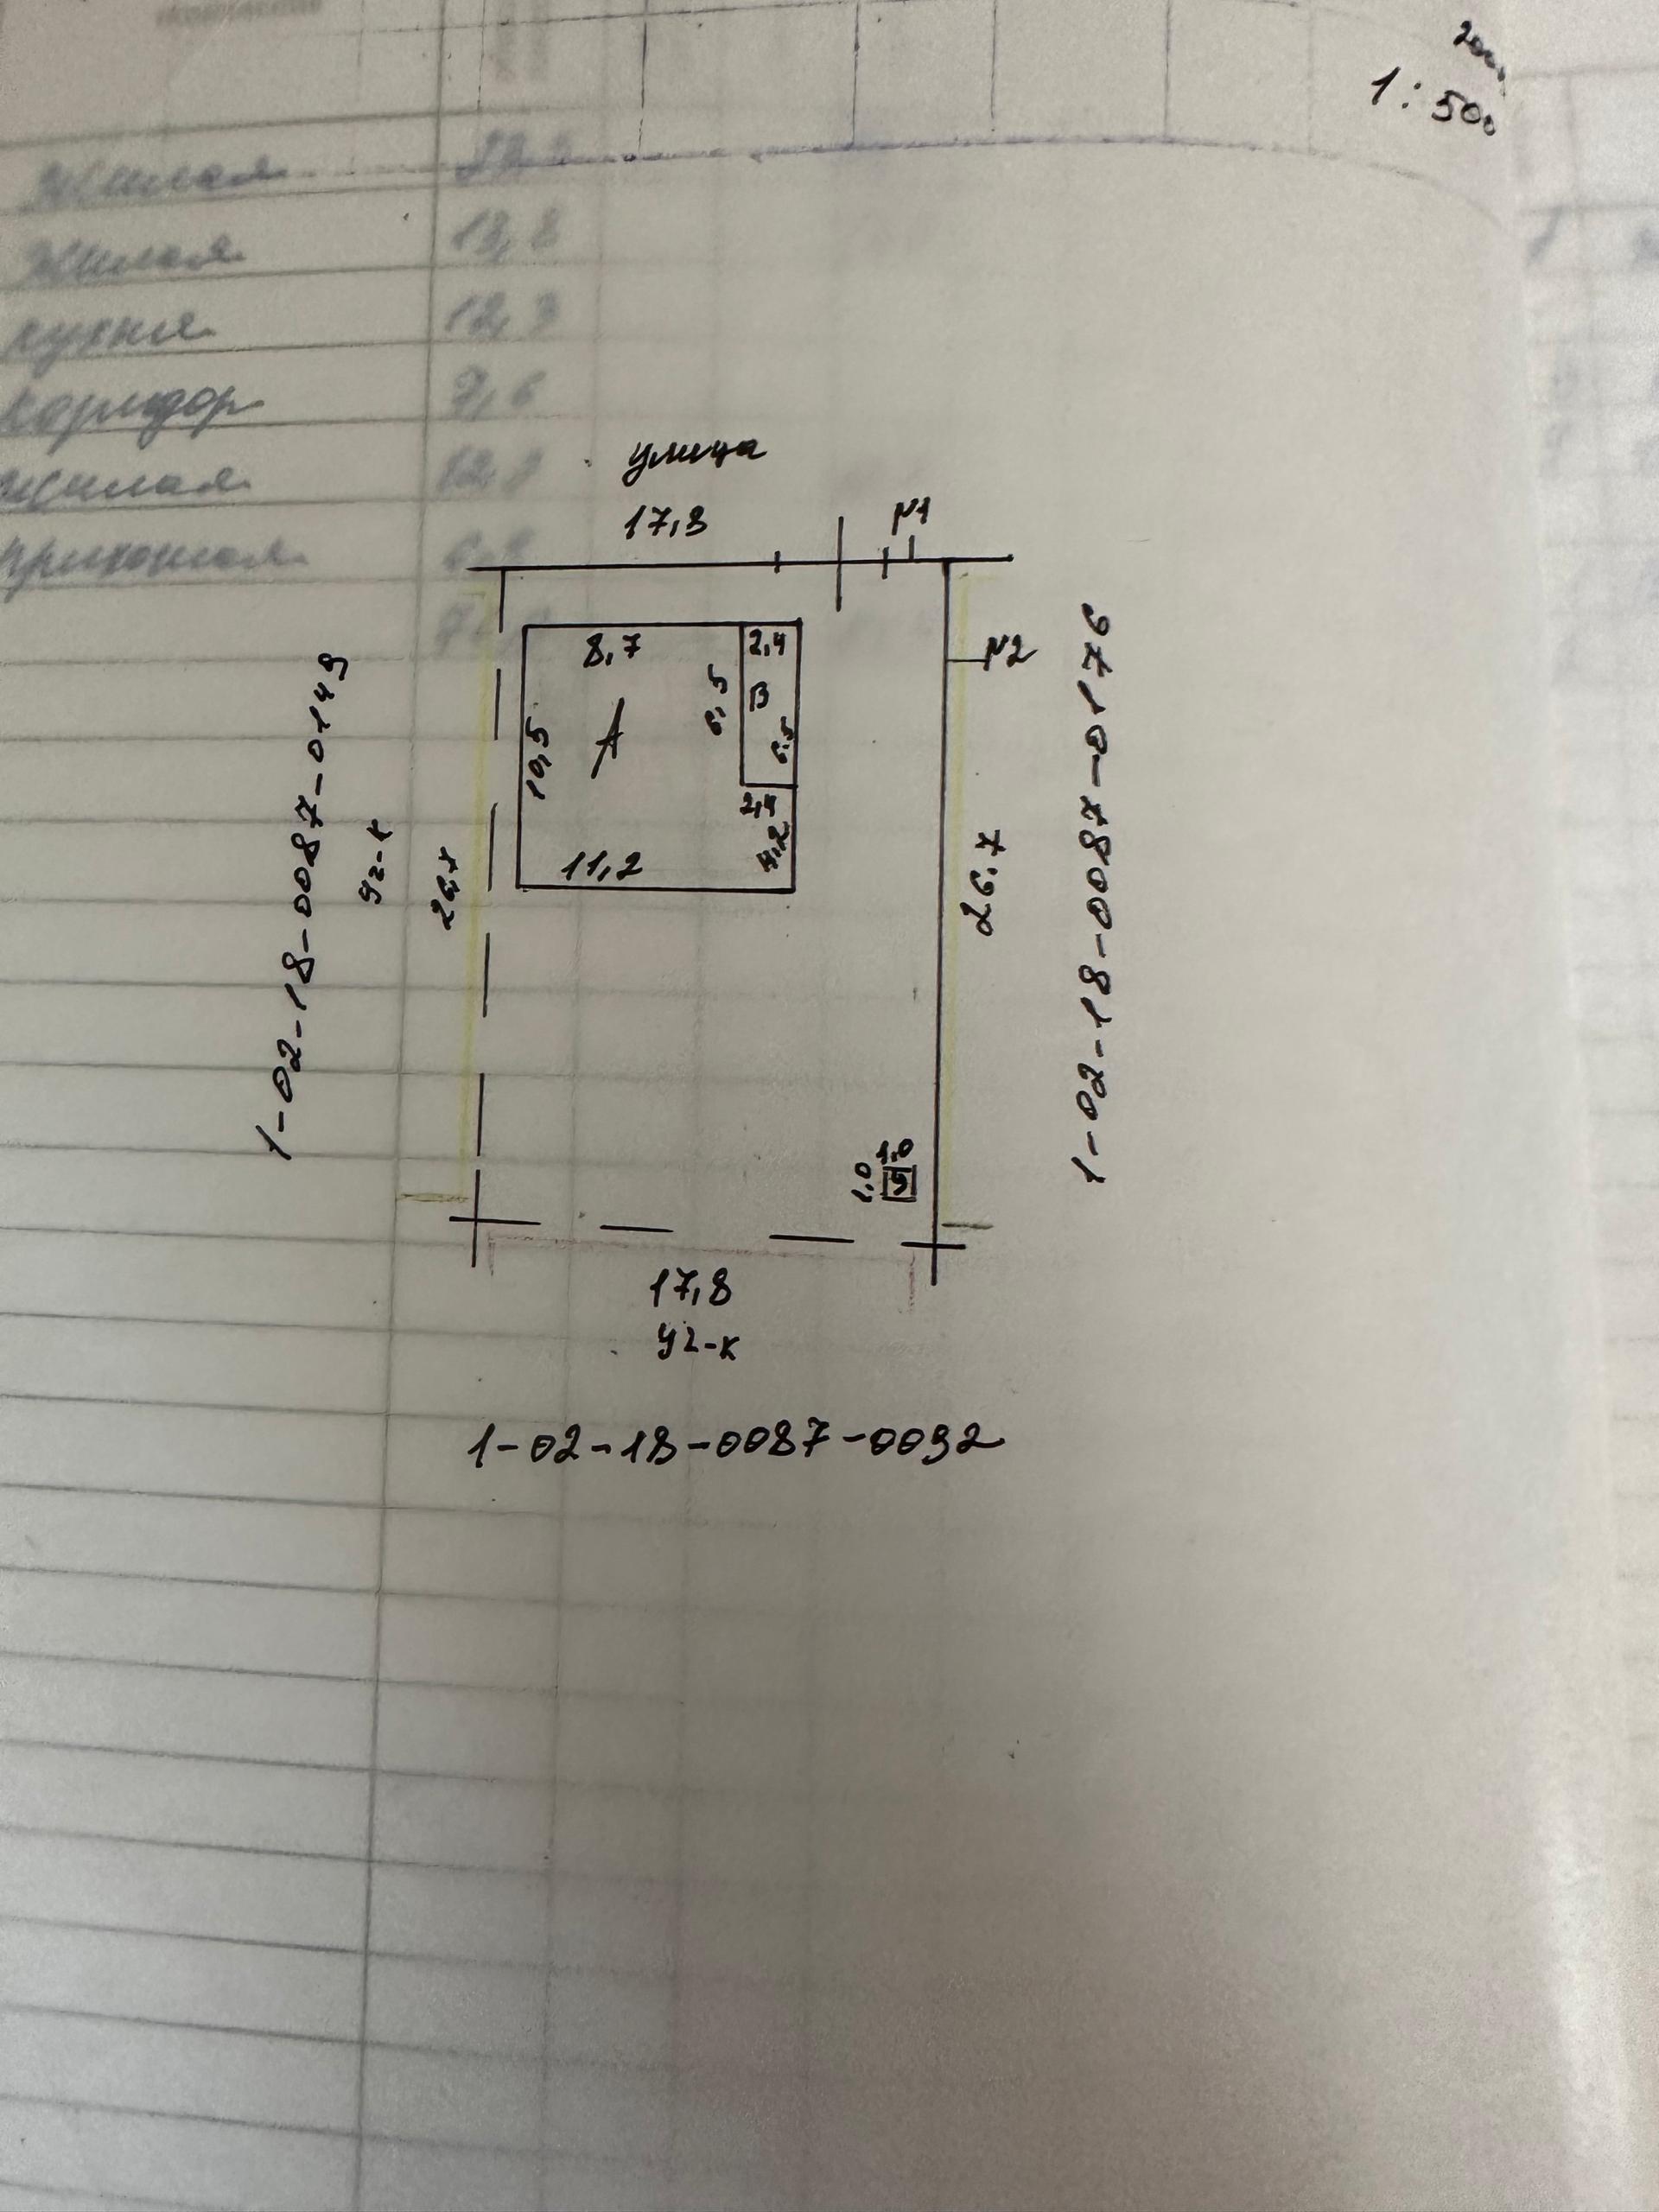 1:500
Жилая
Жилая 13,8
кухня 12,3
коридор 7,6
Жилая
прихожая
улица
17,8
N1
N2
8,7
2,4
6,5
В
6.5
А
10,5
2,4
4.2
11,2
26,7
26.7
уч-к
1-02-18-0087-0149
1-02-18-0087-0176
1,0
1.0
У
17,8
уч-к
1-02-18-0087-0092